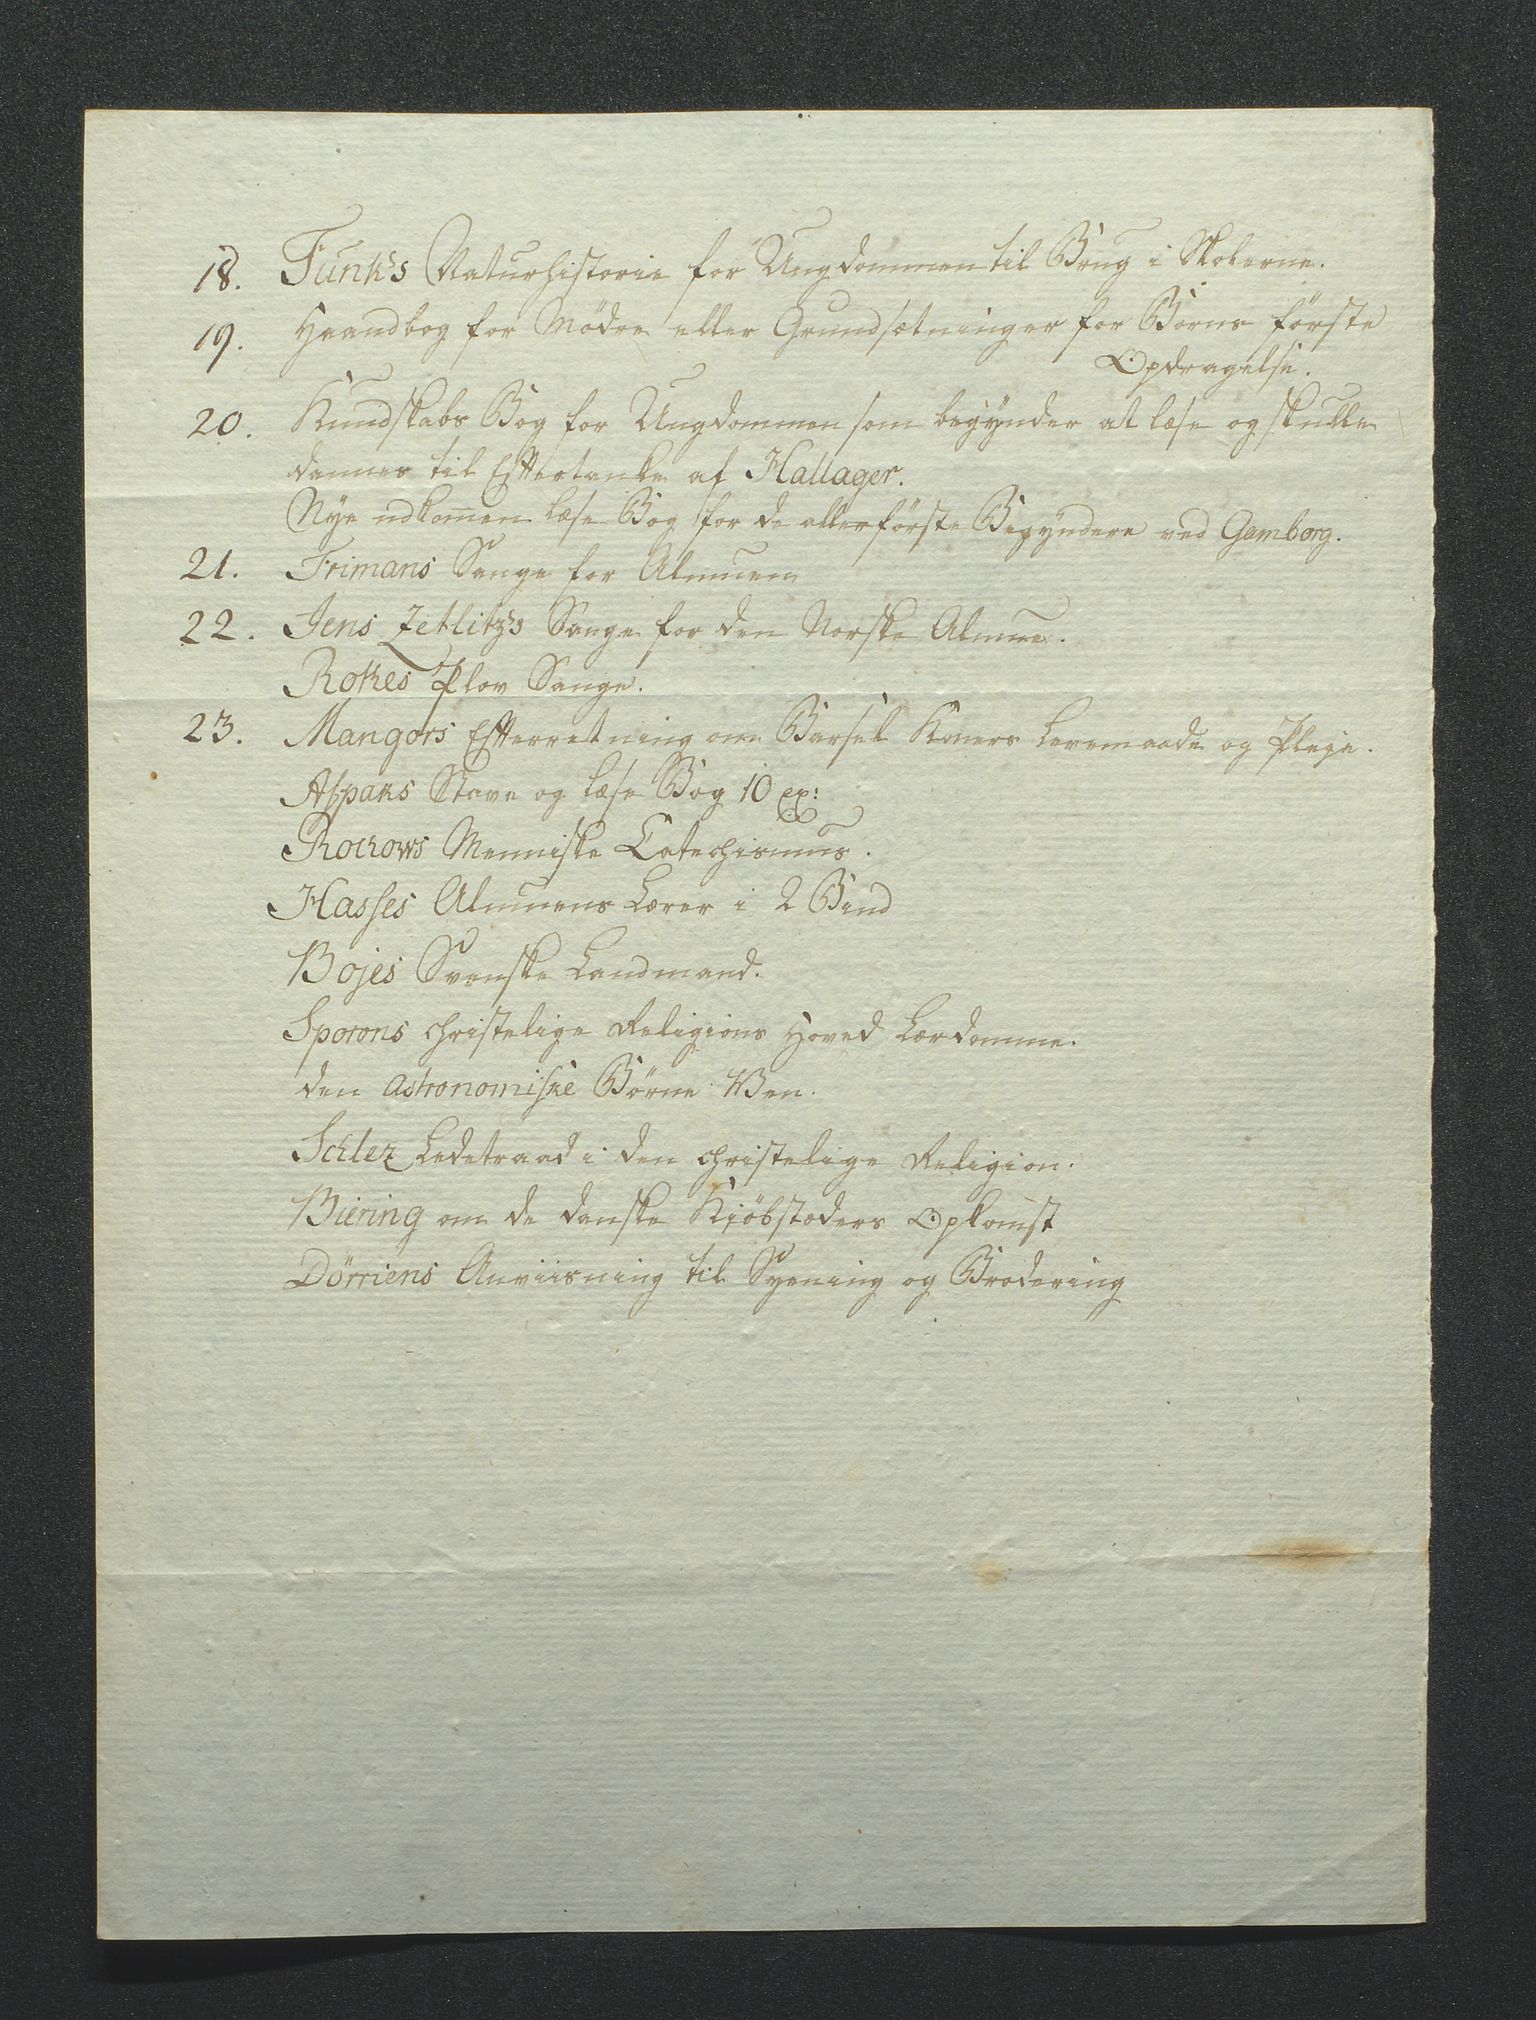 18. Funk's Naturhistorie for Ungdommen til Brug i Skolerne.
19. Haandbog for Mødre eller Grundsætninger for Børns første
Opdragelse.
20. Kundskabs Bog for Ungdommen som begynder at læse og skulle
dannes til Eftertanke af Hallager.
Nye udkom̅en læse Bog for de allerførste Begyndere ved Gamborg.
21. Frimans Sange for Almuen
22. Jens Zetlitz's Sange for den Norske Almue.
Rotkes Plov Sange.
23. Mangors Efterretning om Barsel Koners Levemaade og Pleje.
Aspaks Stave og læse Bog 10 ex:
Rochows Menniske Catechismus.
Hasses Almuens Lærer i 2 Bind
Bojes Svenske Landmand.
Sporons christelige Religions Hoved Lærdomme.
den Astronomiske Børne Ven.
Schlez Ledetraad i den christelige Religion.
Biering om de danske Kiøbstæders Opkomst
Dörriens Anviisning til Syening og Brodering